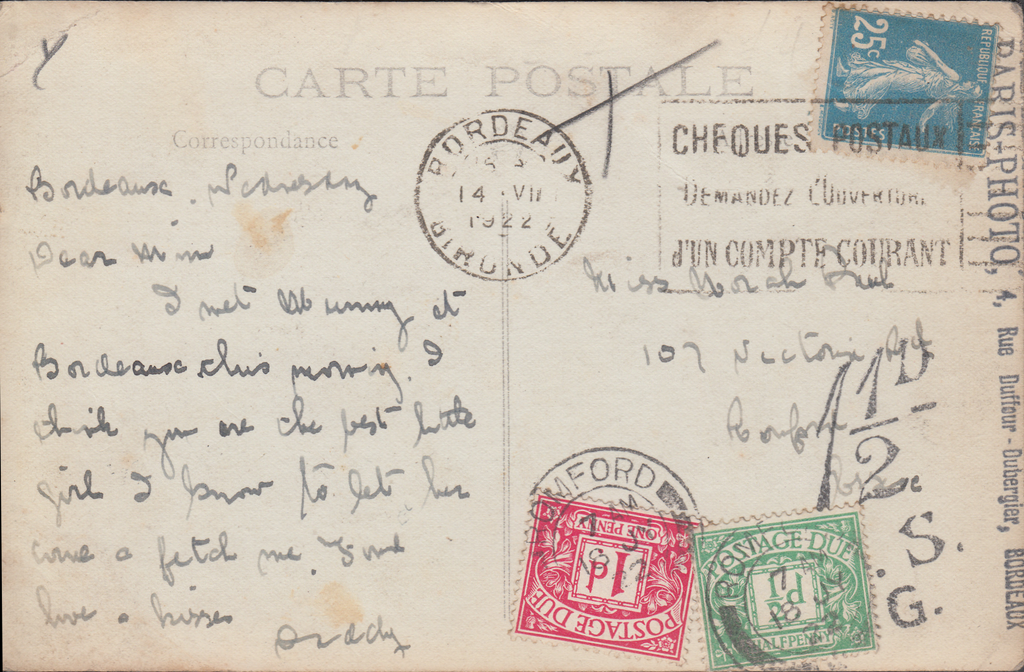 CARTE POSTALE
Correspondance
Bordeaux. Wednesday
Dear Mim
I met Mummy at
Bordeaux this morning. I
think you are the best little
girl I know to let her
come & fetch me. Fond
love & kisses
Daddy
BORDEAUX
14 VII
1922
GIRONDE
25c
REPUBLIQUE FRANCAISE
POSTES
CHEQUES POSTAUX
DEMANDEZ L'OUVERTURE
D'UN COMPTE COURANT
Miss Norah
107 Victoria Rd
Romford
Essex
1½D
S.
G.
PARIS-PHOTO, 4, Rue Duffour-Dubergier, BORDEAUX
ROMFORD
18
ONE PENNY
1d
POSTAGE DUE
POSTAGE DUE
½d
HALFPENNY
18